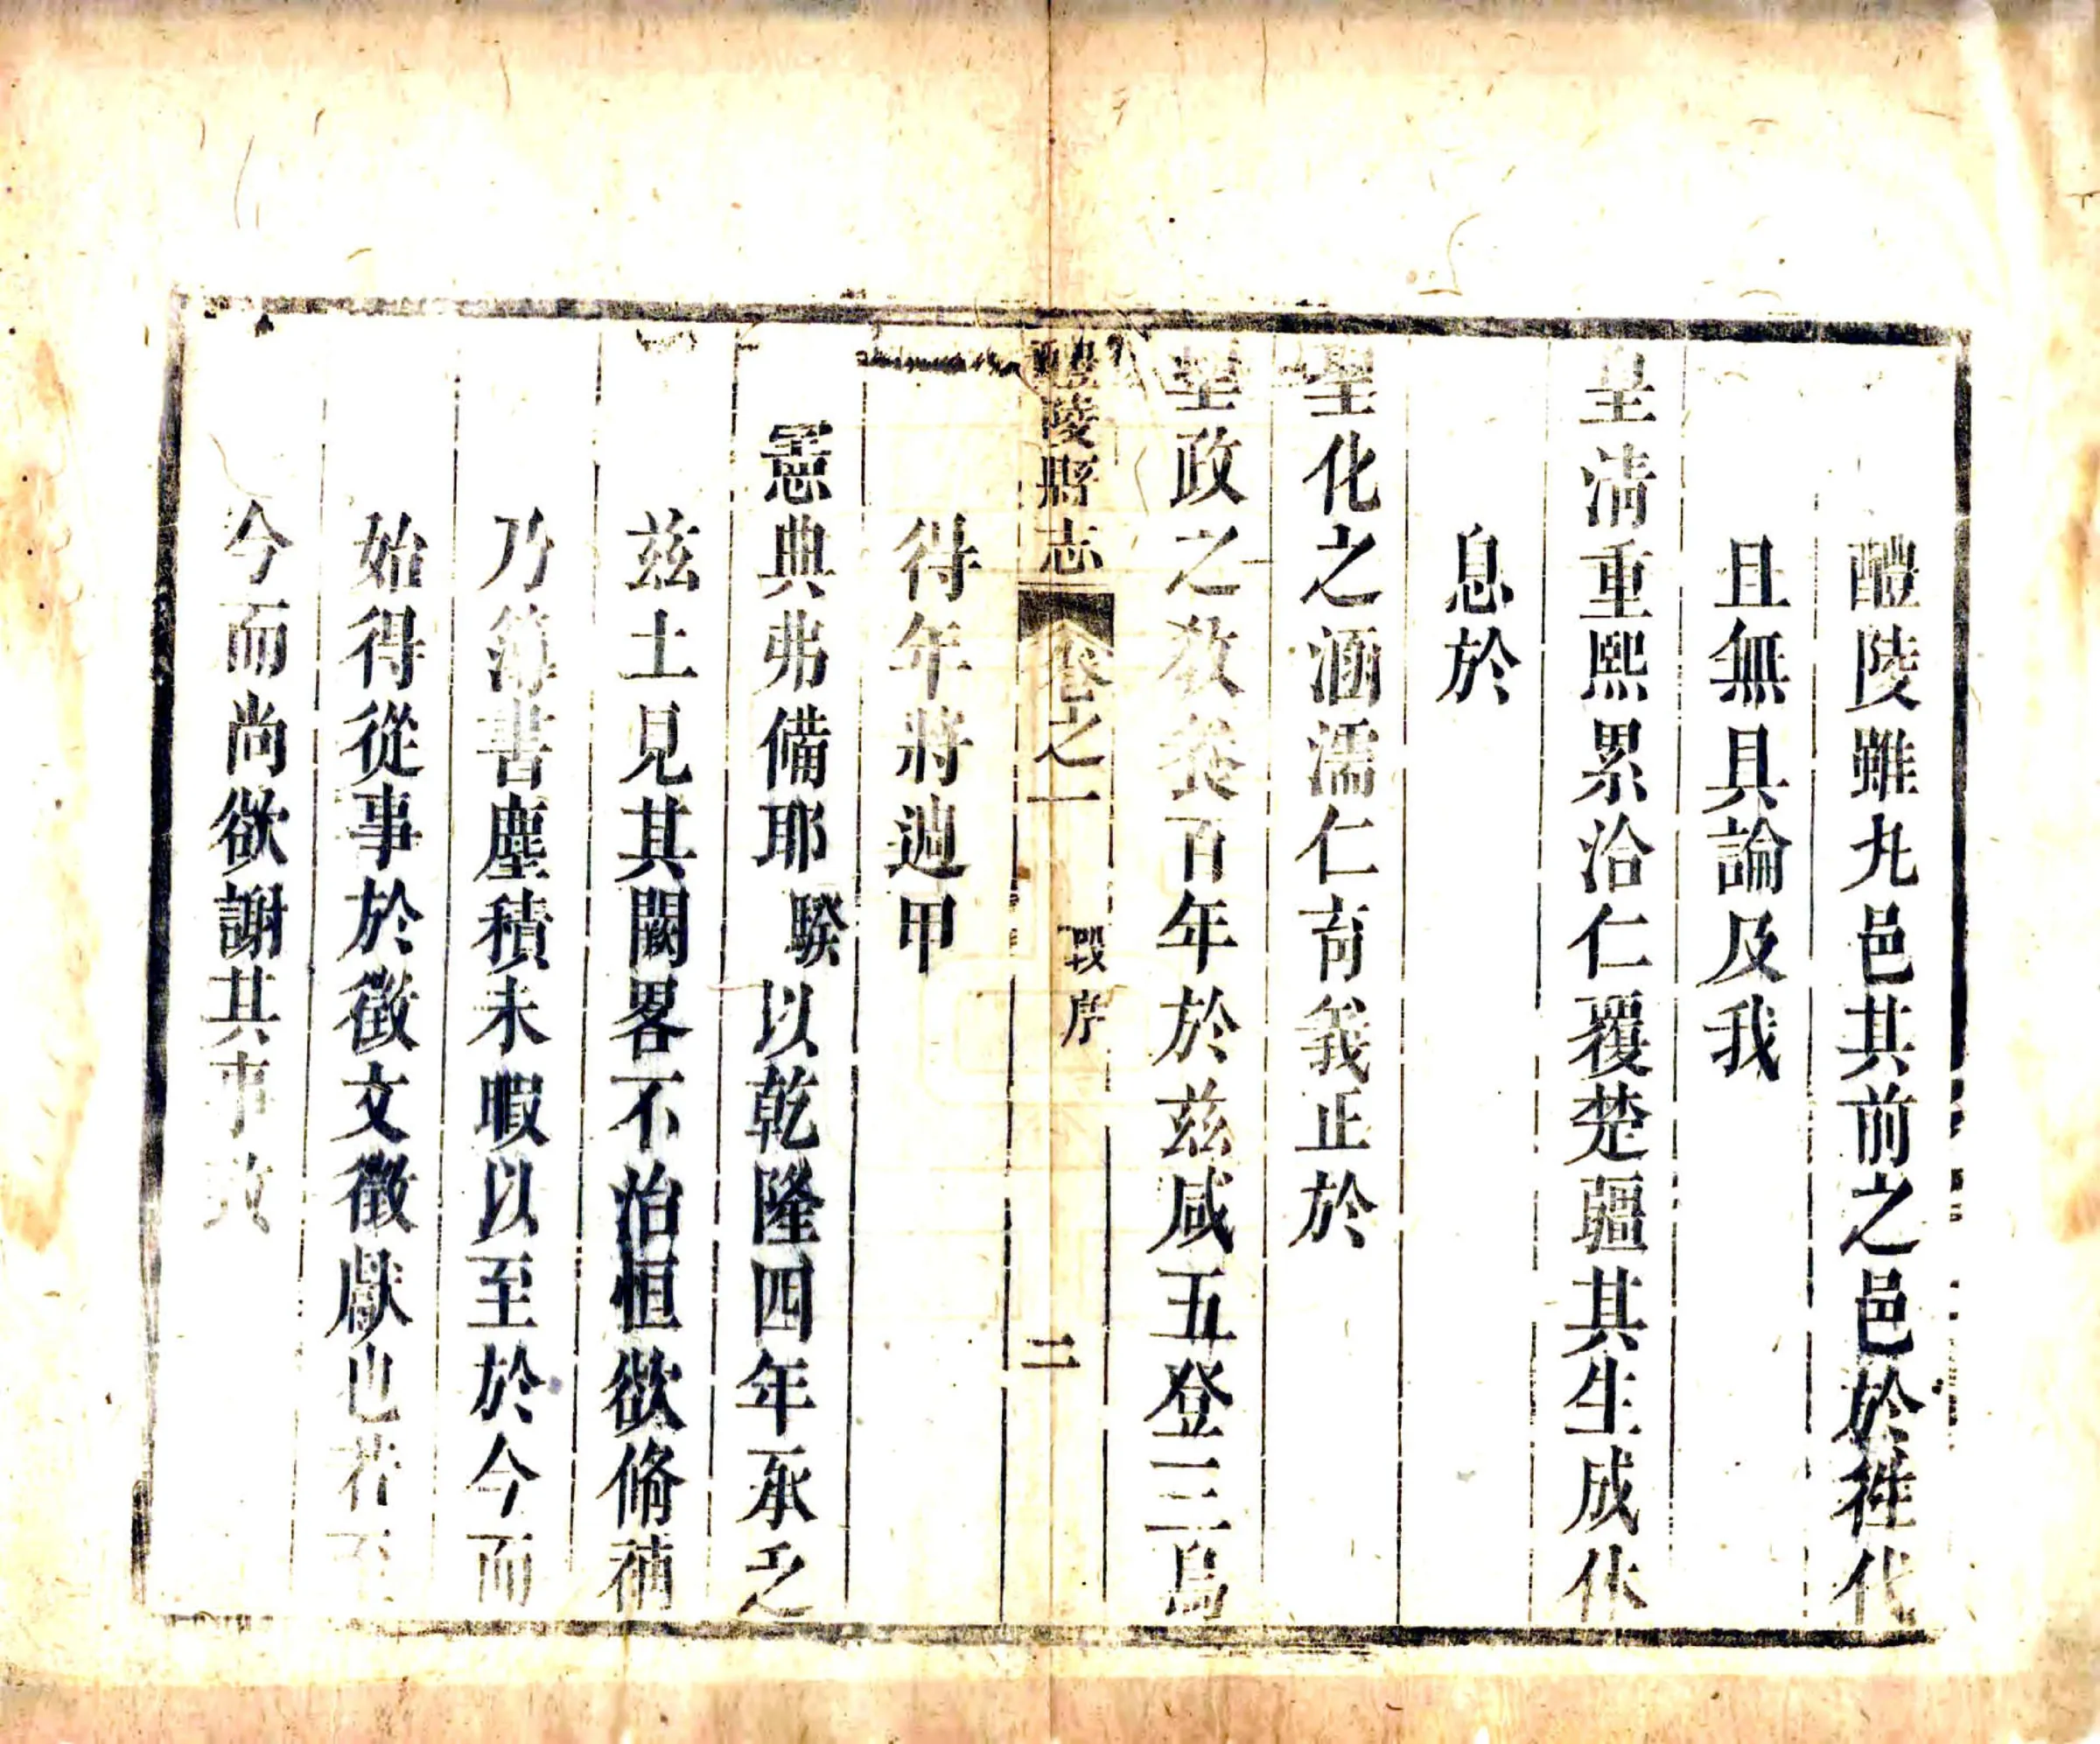 醴陵雖九邑其前之邑於徃代
且無具論及我
皇淸重熙累洽仁覆楚疆其生成休
息於
聖化之涵濡仁育義正於
聖政之敎養百年於兹咸五登三烏
醴陵縣志 卷之一 段序 二
得年將週甲
憲典弗備耶騤以乾隆四年承乏
兹土見其闕畧不治恒欲脩補
乃簿書塵積未暇以至於今而
始得從事於徵文徵獻也若至
今而尚欲謝其事致